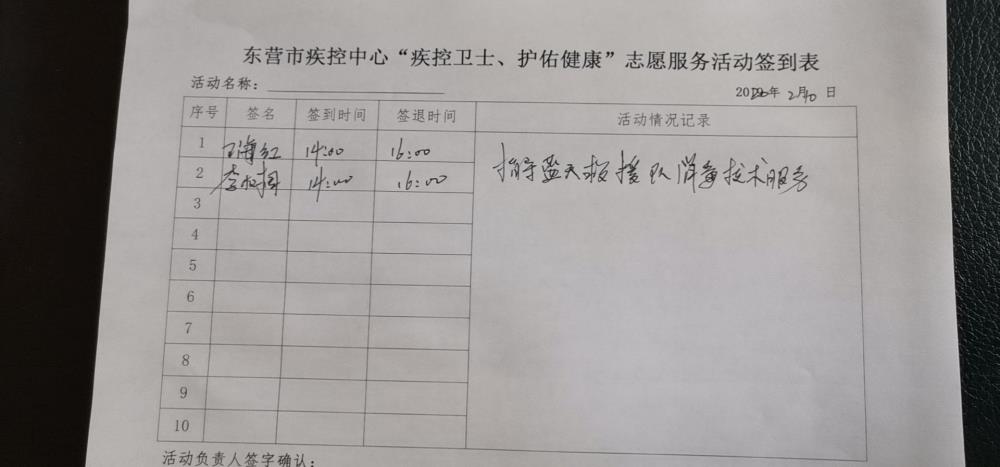 东营市疾控中心“疾控卫士、护佑健康”志愿服务活动签到表
活动名称：
2020年 2月10日
序号 签名 签到时间 签退时间 活动情况记录
1 王海红 14:00 16:00
2 李 14:00 16:00
指导蓝天救援队消毒技术服务
3
4
5
6
7
8
9
10
活动负责人签字确认：